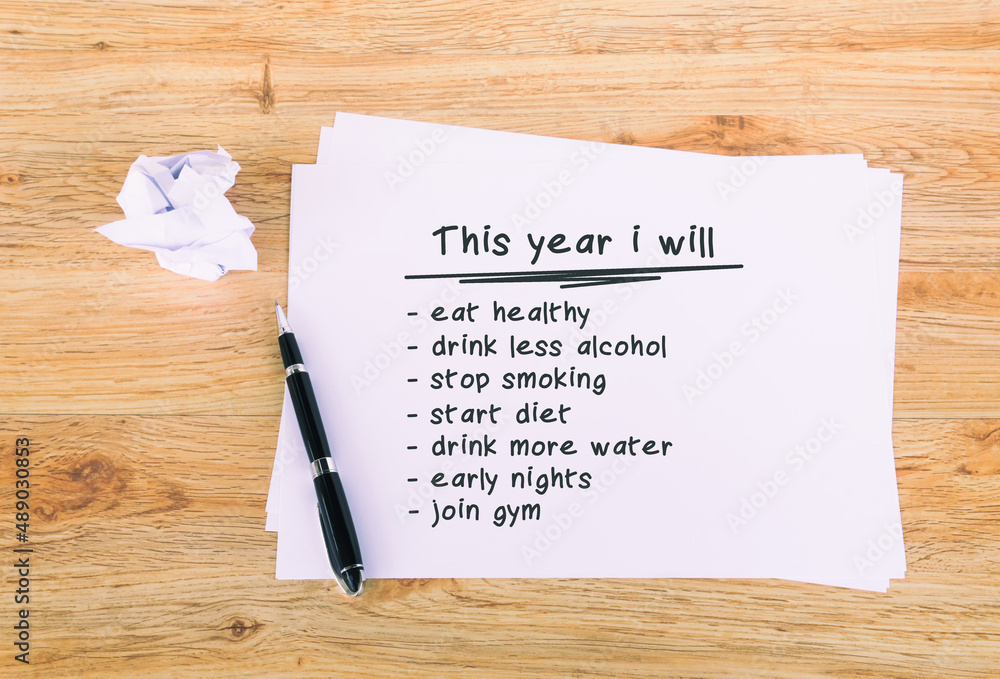 This year i will
- eat healthy
- drink less alcohol
- stop smoking
- start diet
- drink more water
- early nights
- join gym
Adobe Stock | #489030853